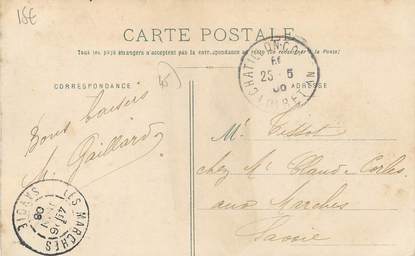 15€
CARTE POSTALE
Tous les pays étrangers n'acceptent pas la correspondance au recto (se renseigner à la Poste).
CORRESPONDANCE
ADRESSE
CHATILLON-CO
25 5
LOIRET
Bons baisers
M. Gaillard
Mr Tissot
chez Mr Claude
aux Marches
Savoie
LES MARCHES
SAVOIE
08